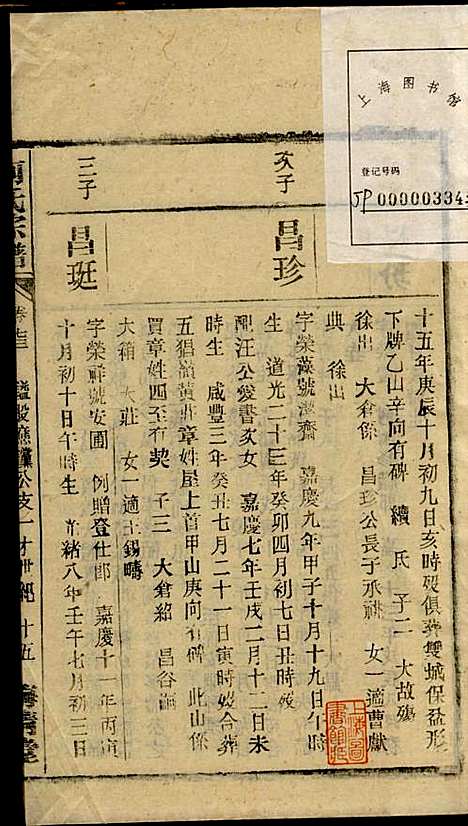 上海图书馆
登记号码
JP 00000334
十五年庚辰十月初九日亥時歿俱葬雙城保盆形
下牌乙山辛向有碑 續 氏 子二 大故殤
徐出 大倉係 昌珍公長子承祧 女一適曹獻
典 徐出
次子
昌珍
字榮藻號 齋 嘉慶九年甲子十月十九日午時
生 道光二十三年癸卯四月初七日丑時歿
配汪公愛書次女 嘉慶七年壬戌二月十二日未
時生 咸豐三年癸丑七月二十一日寅時歿合葬
五猖嶺黃莊章姓屋上首甲山庚向有碑 此山係
買章姓四至有契 子三 大倉紹 昌谷
大箱 大莊 女一適王錫疇
三子
昌珽
字榮祥號安圃 例贈登仕郎 嘉慶十一年丙寅
十月初十日午時生 光緒八年壬午七月初三日
氏宗譜
卷 公支一 世 十五
上海圖書館藏